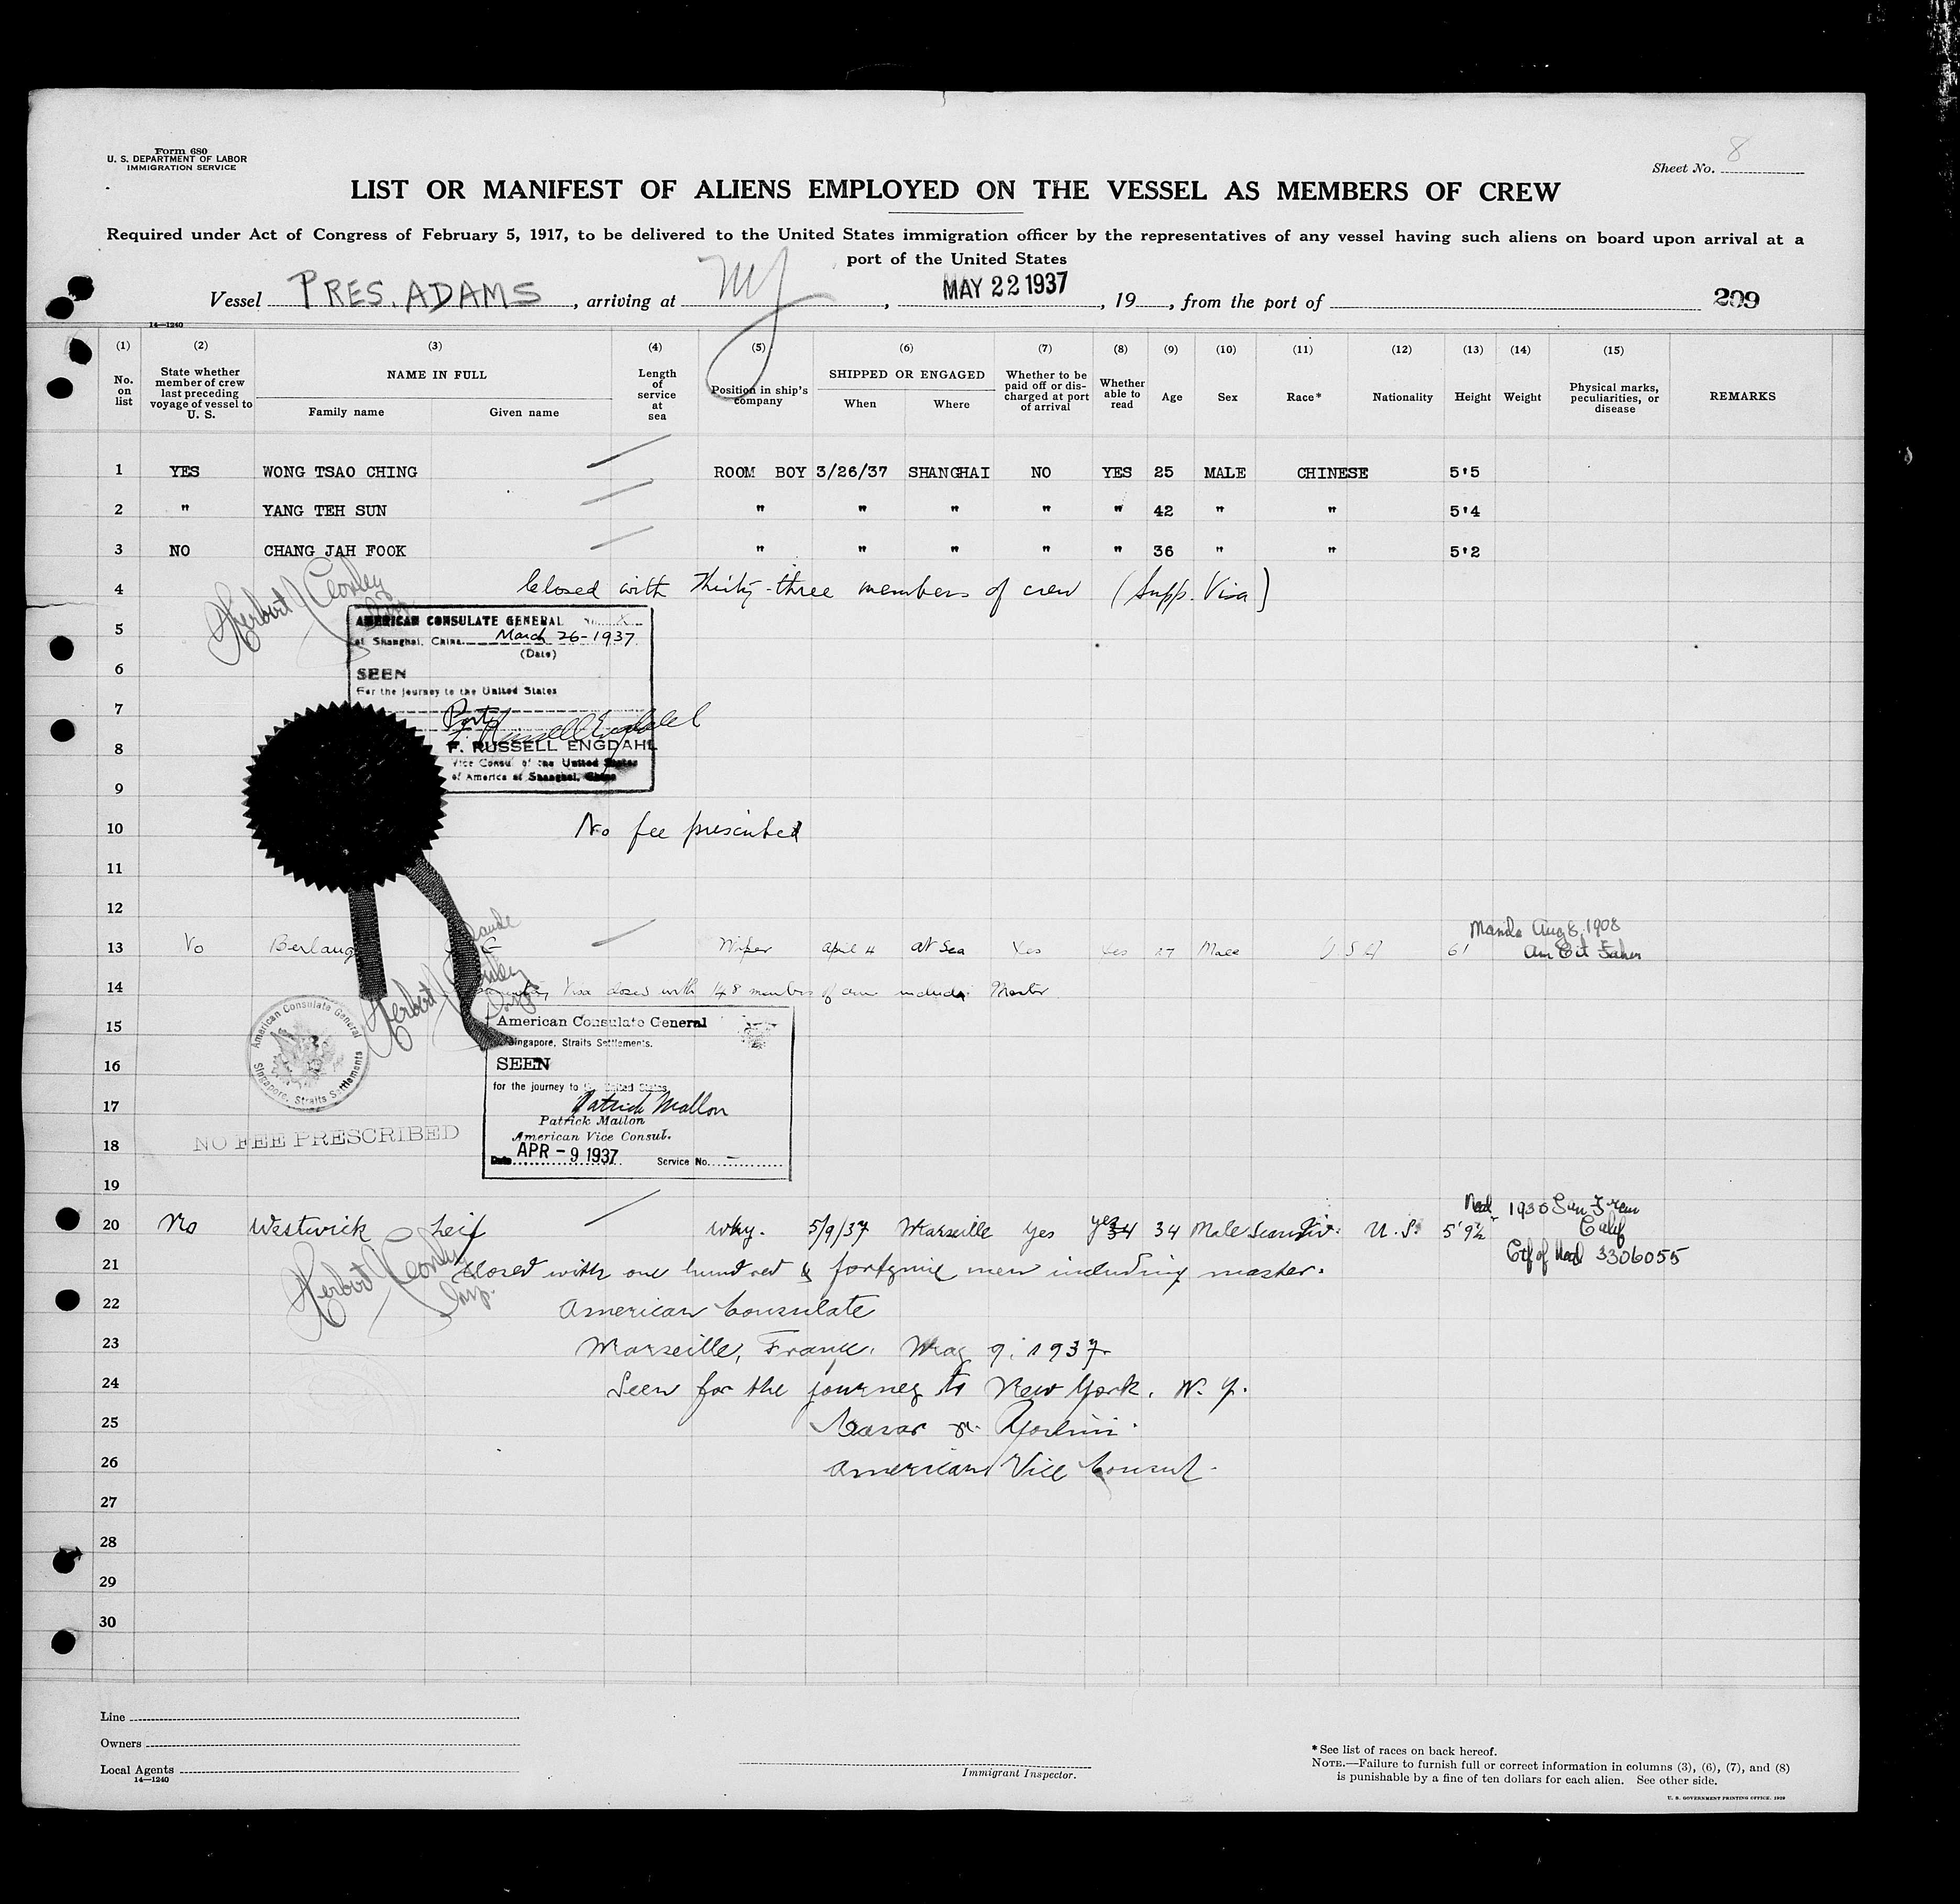 Form 680
U. S. DEPARTMENT OF LABOR
IMMIGRATION SERVICE
Sheet No. 8
LIST OR MANIFEST OF ALIENS EMPLOYED ON THE VESSEL AS MEMBERS OF CREW
Required under Act of Congress of February 5, 1917, to be delivered to the United States immigration officer by the representatives of any vessel having such aliens on board upon arrival at a
port of the United States
Vessel PRES. ADAMS, arriving at NY, MAY 22 1937, 19__, from the port of 209
14—1240
(1) (2) (3) (4) (5) (6) (7) (8) (9) (10) (11) (12) (13) (14) (15)
No. on list
State whether member of crew last preceding voyage of vessel to U. S.
NAME IN FULL
Family name Given name
Length of service at sea
Position in ship's company
SHIPPED OR ENGAGED
When Where
Whether to be paid off or discharged at port of arrival
Whether able to read
Age Sex Race* Nationality Height Weight
Physical marks, peculiarities, or disease
REMARKS
1 YES WONG TSAO CHING ROOM BOY 3/26/37 SHANGHAI NO YES 25 MALE CHINESE 5'5
2 " YANG TEH SUN " " " " " 42 " " 5'4
3 NO CHANG JAH FOOK " " " " " 36 " " 5'2
4 Closed with thirty-three members of crew (Supp. Visa)
5
AMERICAN CONSULATE GENERAL
at Shanghai, China March 26-1937
(Date)
6
SEEN
For the journey to the United States
7
8
F. RUSSELL ENGDAHL
Vice Consul of the United States
of America at Shanghai, China
9
10 No fee prescribed
11
12
Manila Aug 8, 1908
13 No Wiper April 4 At Sea Yes Yes 27 Male USA 6' Am Cit Father
14 Visa closed with 148 members of crew Master
American Consulate General
Singapore, Straits Settlements
15
American Consulate General
Singapore, Straits Settlements.
16
SEEN
for the journey to the United States
17
Patrick Mallon
Patrick Mallon
American Vice Consul.
18
NO FEE PRESCRIBED
Date APR - 9 1937 Service No. -
19
Nat 1930 San Fran
Calif
20 No Westwick Leif Wky. 5/9/37 Marseille Yes yes 34 34 Male Scandiv. U.S. 5'9½"
Ctf of Nat 3306055
21 Closed with one hundred & fortynine men including master.
22 American Consulate
23 Marseille, France. May 9, 1937
24 Seen for the journey to New York, N. Y.
25
26 American Vice Consul.
27
28
29
30
Line
Owners
Local Agents
14—1240
Immigrant Inspector.
*See list of races on back hereof.
NOTE.—Failure to furnish full or correct information in columns (3), (6), (7), and (8)
is punishable by a fine of ten dollars for each alien. See other side.
U. S. GOVERNMENT PRINTING OFFICE: 1929